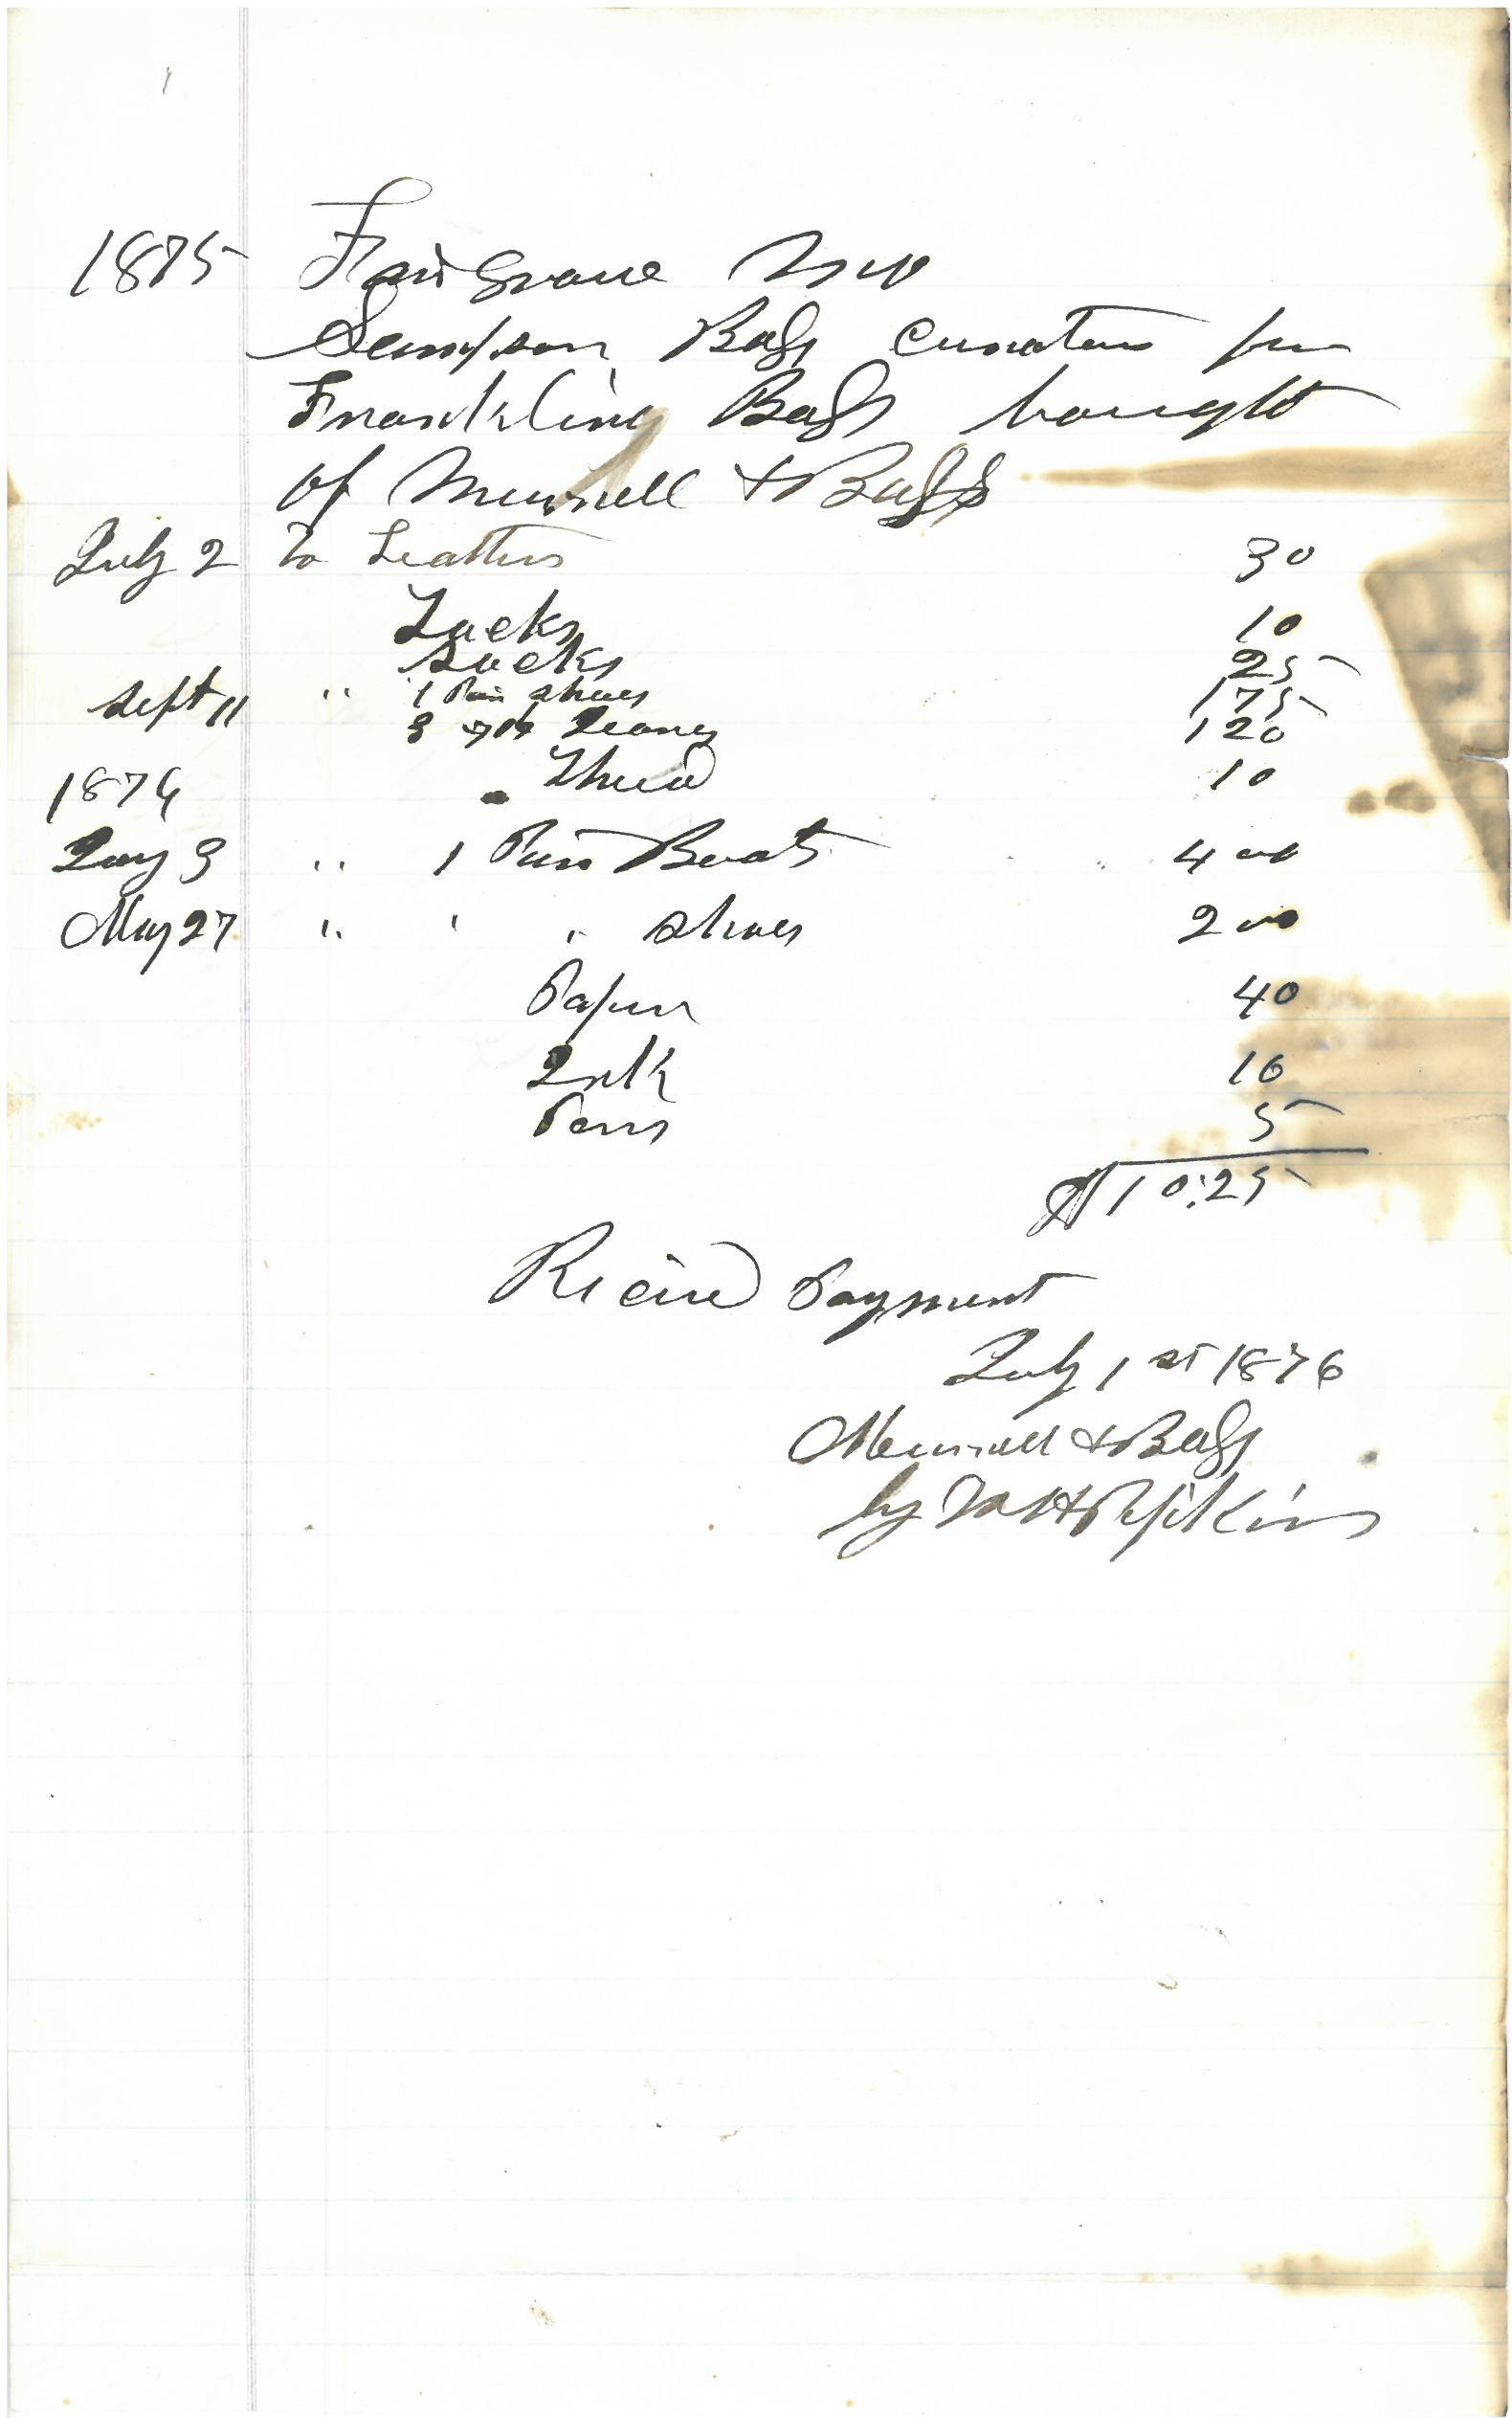 1875 Fair Grove Mo
Sampson Bass curator for
Frankling Bass bought
of Murrell & Bass
July 2 To Leather 30
Tacks 10
Sacks 25
Sept 11 " 1 Pair shoes 175
3 yds Jeans 120
1876 Thread 10
Jany 3 " 1 Pair Boots 4 00
May 27 " " " shoes 2 00
Paper 40
Ink 10
Pens 5
$10.25
Recived Payment
July 1st 1876
Murrell & Bass
by